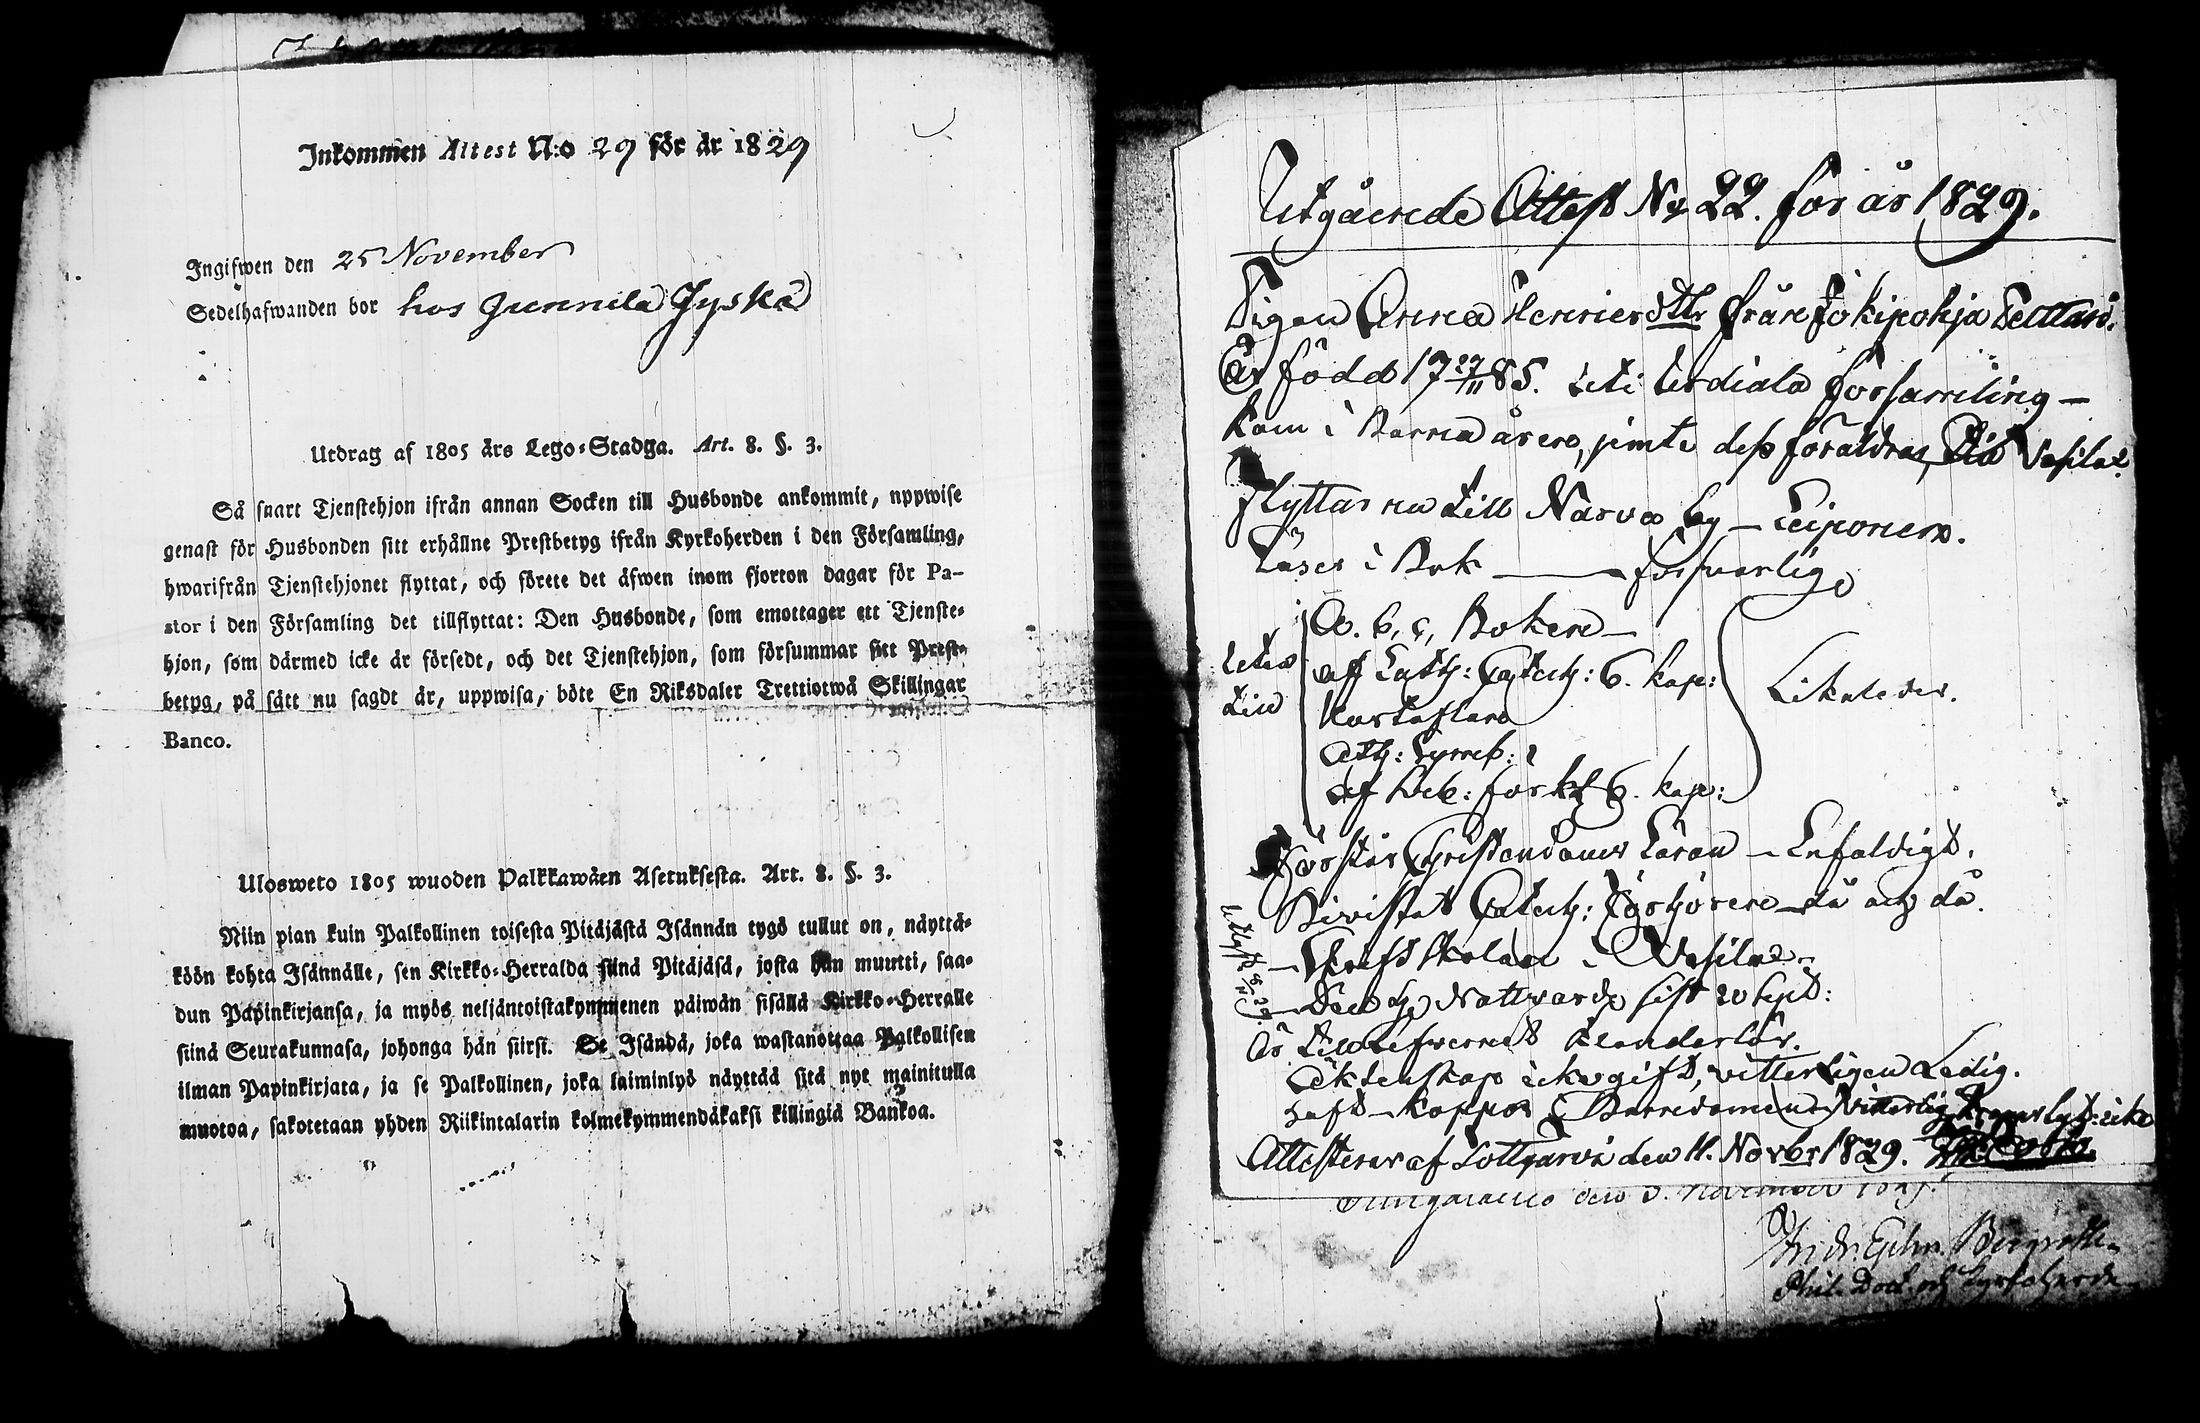 Inkommen Attest N:o 29 för år 1829
Ingifwen den 25 November
Sedelhafwanden bor hos Gunnila Jyskä
Utdrag af 1805 års Lego-Stadga. Art. 8. §. 3.
Så snart Tjenstehjon ifrån annan Socken till Husbonde ankommit, uppwise
genast för Husbonden sitt erhållne Prestbetyg ifrån Kyrkoherden i den Församling,
hwarifrån Tjenstehjonet flyttat, och förete det äfwen inom fjorton dagar för Pa-
stor i den Församling det tillflyttat: Den Husbonde, som emottager ett Tjenste-
hjon, som därmed icke är försedt, och det Tjenstehjon, som försummar sitt Prest-
betyg, på sätt nu sagdt är, uppwisa, böte En Riksdaler Trettiotwå Skillingar
Banco.
Ulosweto 1805 wuoden Palkkawäen Asetuksesta. Art. 8. §. 3.
Niin pian kuin Palkollinen toisesta Pitäjästä Isännän tygö tullut on, näyttä-
köön kohta Isännälle, sen Kirkko-Herralda siinä Pitäjäsä, josta hän muutti, saa-
dun Papinkirjansa, ja myös neljäntoistakymmenen päiwän sisällä Kirkko-Herralle
siinä Seurakunnasa, johonga hän siirsi. Se Isändä, joka wastanottaa Palkollisen
ilman Papinkirjata, ja se Palkollinen, joka laiminlyö näyttää sitä nyt mainitulla
muotoa, sakotetaan yhden Riikintalarin kolmekymmendäkaksi killingiä Bankoa.
Utgående Attest No 22. för år 1829.
Pigan Anna Henricsdttr från Jokipohja
Är född 17 27/11 85. uti Urdiala församling –
kom i Barna åren, jemte dess föräldrar, till Vesilax
Flyttar nu till Narva by –
Läser i Bok — försvarlige
A. b. c, Boken –
utan
till
af Luth: Catech: 6. kap:
Hustaflan
Ath: Symb:
af Sveb: förkl 6. kap:
Förstår Christendoms Läran – Enfaldigt.
Bivistat Catech: förhören då och då.
– Skriftskolan i Vesilax –
– Den H. Nattvard sist 20 Sept:
Är till lefvernet klanderlös.
Äktenskap icke gift, vitterligen Ledig.
Haft – koppor i Barndomen
Attesterar af Tottijärvi den 11. Novbr 1829.
den 5. November
Andr. Ephr. Bergroth
Phil. Doct. och Kyrkoherde